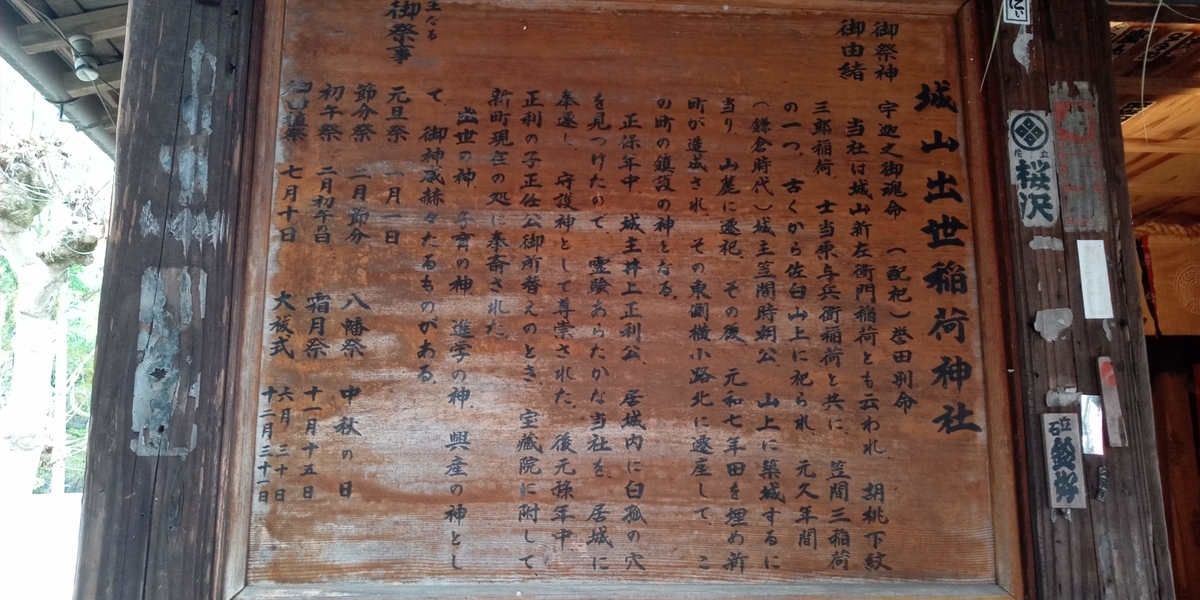 城山出世稲荷神社
御祭神 宇迦之御魂命 (配祀)誉田別命
御由緒 当社は城山新左衛門稲荷とも云われ 胡桃下紋
三郎稲荷 士当原与兵衛稲荷と共に、笠間三稲荷
の一つ、古くから佐白山上に祀られ 元久年間
(鎌倉時代)城主笠間時朝公、山上に築城するに
当り、山麓に遷祀 その後 元和七年田を埋め新
町が造成され、その東側横小路北に遷座して、こ
の町の鎮護の神となる。
正保年中 城主井上正利公、居城内に白狐の穴
を見つけたので、霊験あらたかな当社を、居城に
奉遷し、守護神として尊崇された、後元禄年中
正利の子正任公御所替えのとき、宝蔵院に附して
新町現在の処に奉斎された、
出世の神 子育の神 進学の神、興産の神とし
て、御神威赫々たるものがある。
主なる
御祭事
元旦祭 一月一日
節分祭 二月節分 八幡祭 中秋の日
初午祭 二月初午の日 霜月祭 十一月十五日
祭 七月十日 大祓式 六月三十日
十二月三十一日
花立
桜沢
足立
鈴木